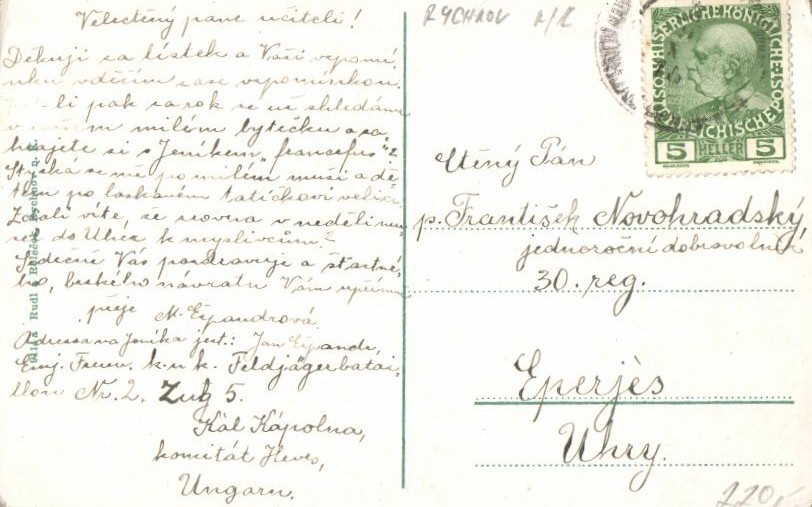 Velectěný pane učiteli!
Děkuji za lístek a Vaši vzpomí,
nku vděčím zase vzpomínkou.
li pak za rok se už shledáme
v milém bytečku a za
hrajete si s Jeníkem „francefus"?
Stýská se mi po milém muži a dě,
tem po laskavém tatíčkovi velice.
Zdali víte, že zrovna v neděli mu,
do Uher k myslivcům?
Srdečně Vás pozdravuji a šťastné,
ho, brzkého návratu Vám upřímně
přeje M. Eypandrová.
Adressa na Jeníka jest: Jan Eypandr,
Einj. Freiw. k. u. k. Feldjägerbatai,
llon Nr. 2. Zug 5.
Kál Kápolna,
komitát Heves,
Ungarn.
Rudl
RYCHNOV
KAISERLICHE KÖNIGLICHE
5 HELLER 5
Ctěný Pán
p. František Novohradský,
jednoroční dobrovolník
30. reg.
Eperjes
Uhry.
220,-